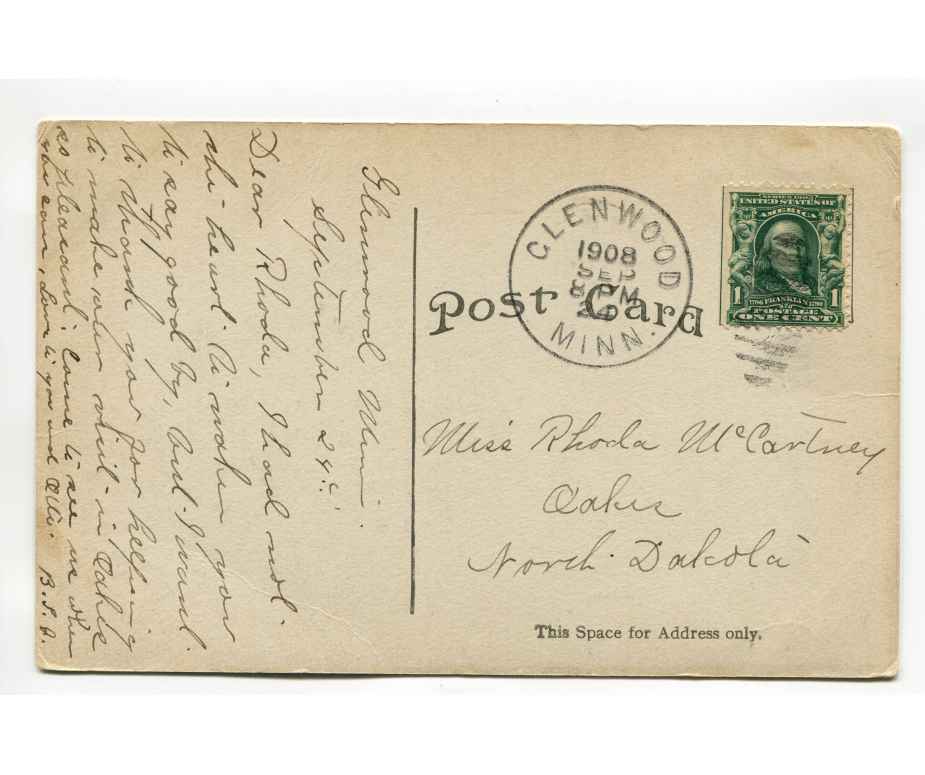 Glenwood Minn.
September 24th
Dear Rhoda, I had not
the heart to waken you
to say good by, but I want
to thank you for helping
to make our visit in Oakes
so pleasant. Come to see us when
you can, Love to you and
B. S. J.
GLENWOOD
1908
SEP
8 PM
MINN.
Post Card
SERIES 1902
UNITED STATES OF
AMERICA
1 FRANKLIN 1
POSTAGE
ONE CENT
Miss Rhoda McCartney
Oakes
North Dakota
This Space for Address only.